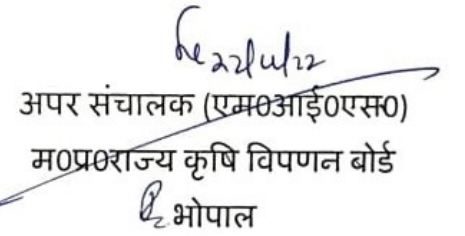 22/11/22
अपर संचालक (एम0आई0एस0)
म0प्र0राज्य कृषि विपणन बोर्ड
भोपाल